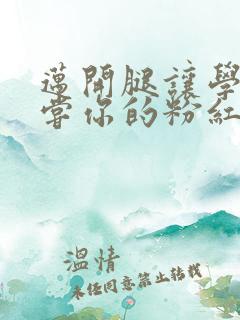 邁開腿讓學
嘗你的粉紅
溫情
未经同意禁止转载